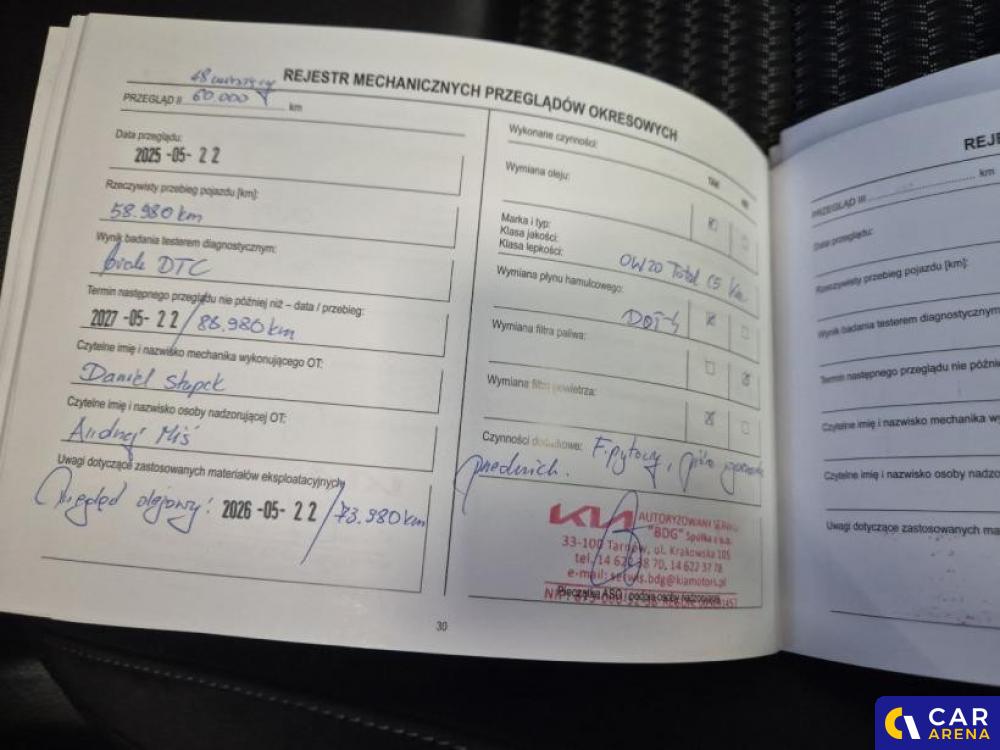 REJESTR MECHANICZNYCH PRZEGLĄDÓW OKRESOWYCH
PRZEGLĄD II 60.000 km
Data przeglądu:
2025-05-22
Rzeczywisty przebieg pojazdu [km]:
58.980 km
Wynik badania testerem diagnostycznym:
brak DTC
Termin następnego przeglądu nie później niż – data / przebieg:
2027-05-22 / 88.980 km
Czytelne imię i nazwisko mechanika wykonującego OT:
Daniel
Czytelne imię i nazwisko osoby nadzorującej OT:
Andrzej Miś
Uwagi dotyczące zastosowanych materiałów eksploatacyjnych
Przegląd olejowy: 2026-05-22 / 73.980 km
Wykonane czynności:
TAK NIE
Wymiana oleju:
Marka i typ:
Klasa jakości:
Klasa lepkości:
0W20 Total C5
Wymiana płynu hamulcowego:
DOT-4
Wymiana filtra paliwa:
Wymiana filtra powietrza:
Czynności dodatkowe: F. pyłkowy, pióra
przednich.
KIA AUTORYZOWANY SERWIS
"BDG" Spółka z o.o.
33-100 Tarnów, ul. Krakowska 105
tel. 14 622 38 70, 14 622 37 78
e-mail: serwis.bdg@kiamotors.pl
Pieczątka ASO i podpis osoby nadzorującej
30
km
PRZEGLĄD III
Data przeglądu:
Rzeczywisty przebieg pojazdu [km]:
Wynik badania testerem diagnostycznym
Termin następnego przeglądu nie późni
Czytelne imię i nazwisko mechanika wy
Czytelne imię i nazwisko osoby nadzo
Uwagi dotyczące zastosowanych ma
CAR
ARENA